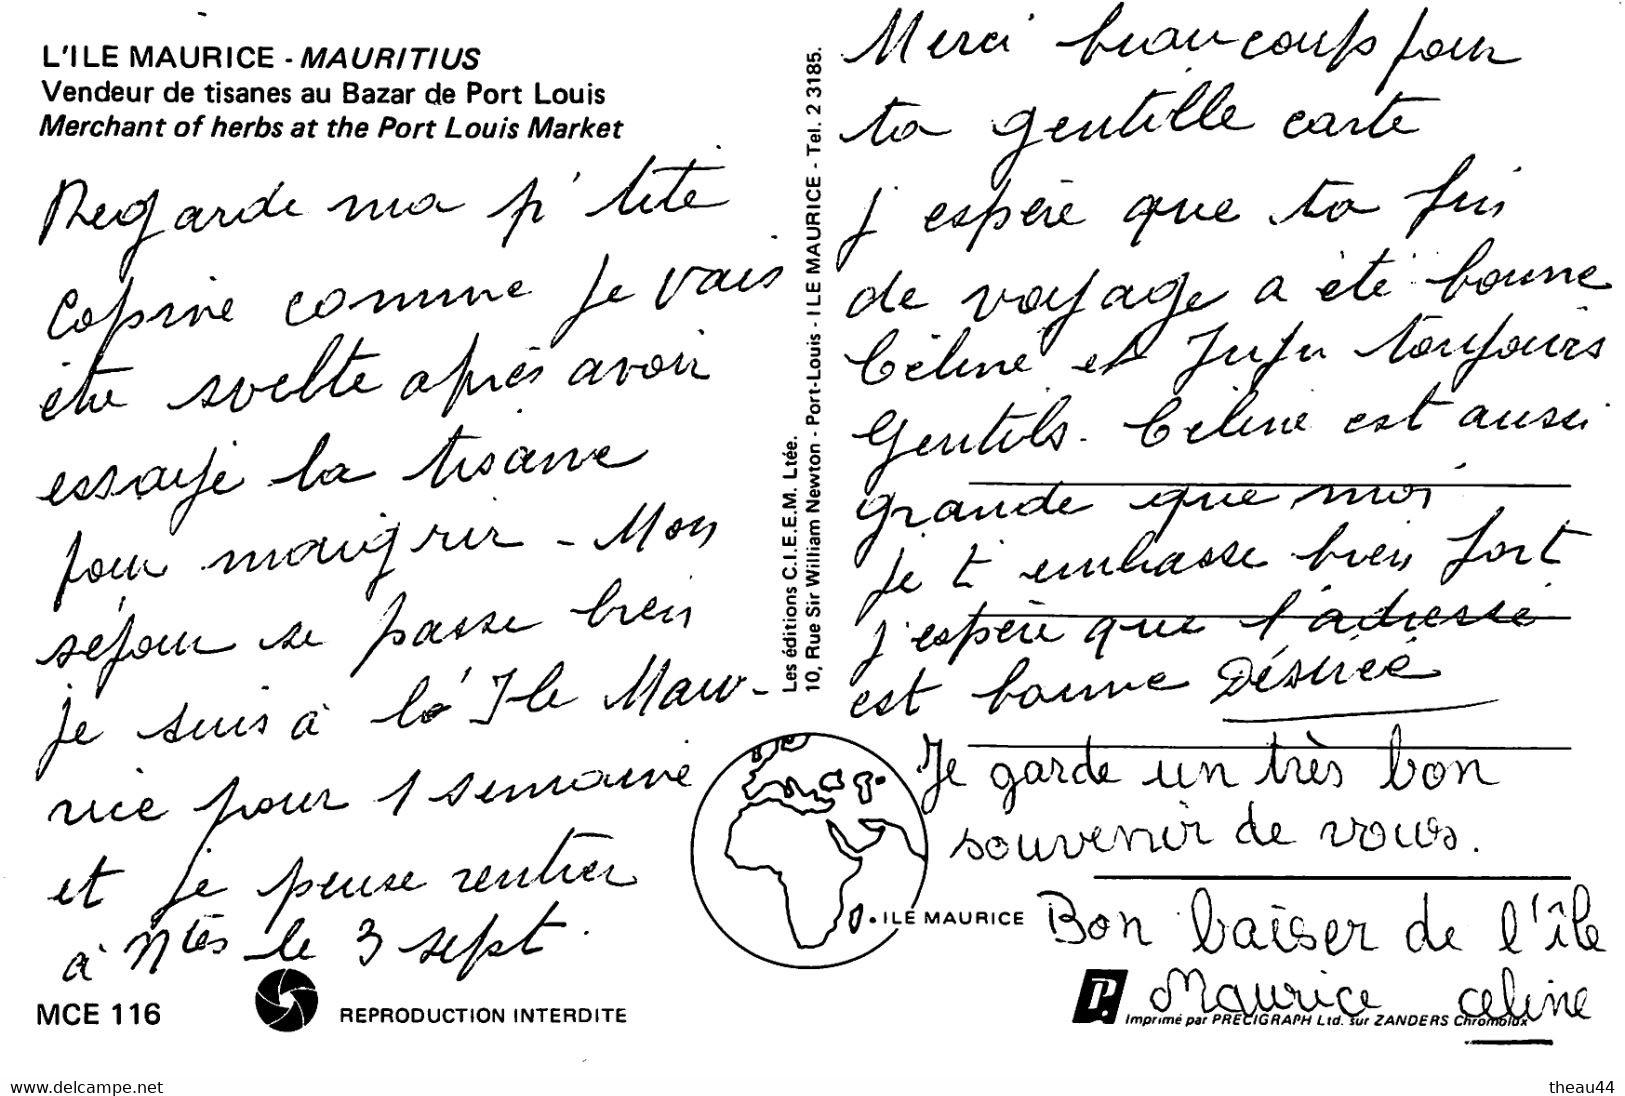 L'ILE MAURICE - MAURITIUS
Vendeur de tisanes au Bazar de Port Louis
Merchant of herbs at the Port Louis Market
Regarde ma p'tite
Copine comme je vais
être svelte après avoir
essayé la tisane
pour maigrir - Mon
séjour se passe bien
je suis à l' Ile Mau-
rice pour 1 semaine
et je pense rentrer
à Ntes le 3 sept.
MCE 116
REPRODUCTION INTERDITE
Les éditions C.I.E.E.M. Ltée.
10, Rue Sir William Newton - Port-Louis - ILE MAURICE - Tel. 2 3185.
Merci beaucoup pour
ta gentille carte
j'espère que ta fin
de voyage a été bonne
Céline et Juju toujours
Gentils. Céline est aussi
grande que moi
je t'embrasse bien fort
j'espère que l'adresse
est bonne Désirée
Je garde un très bon
souvenir de vous.
ILE MAURICE
Bon baiser de l'île
Maurice celine
Imprimé par PRECIGRAPH Ltd. sur ZANDERS Chromolux
www.delcampe.net
theau44